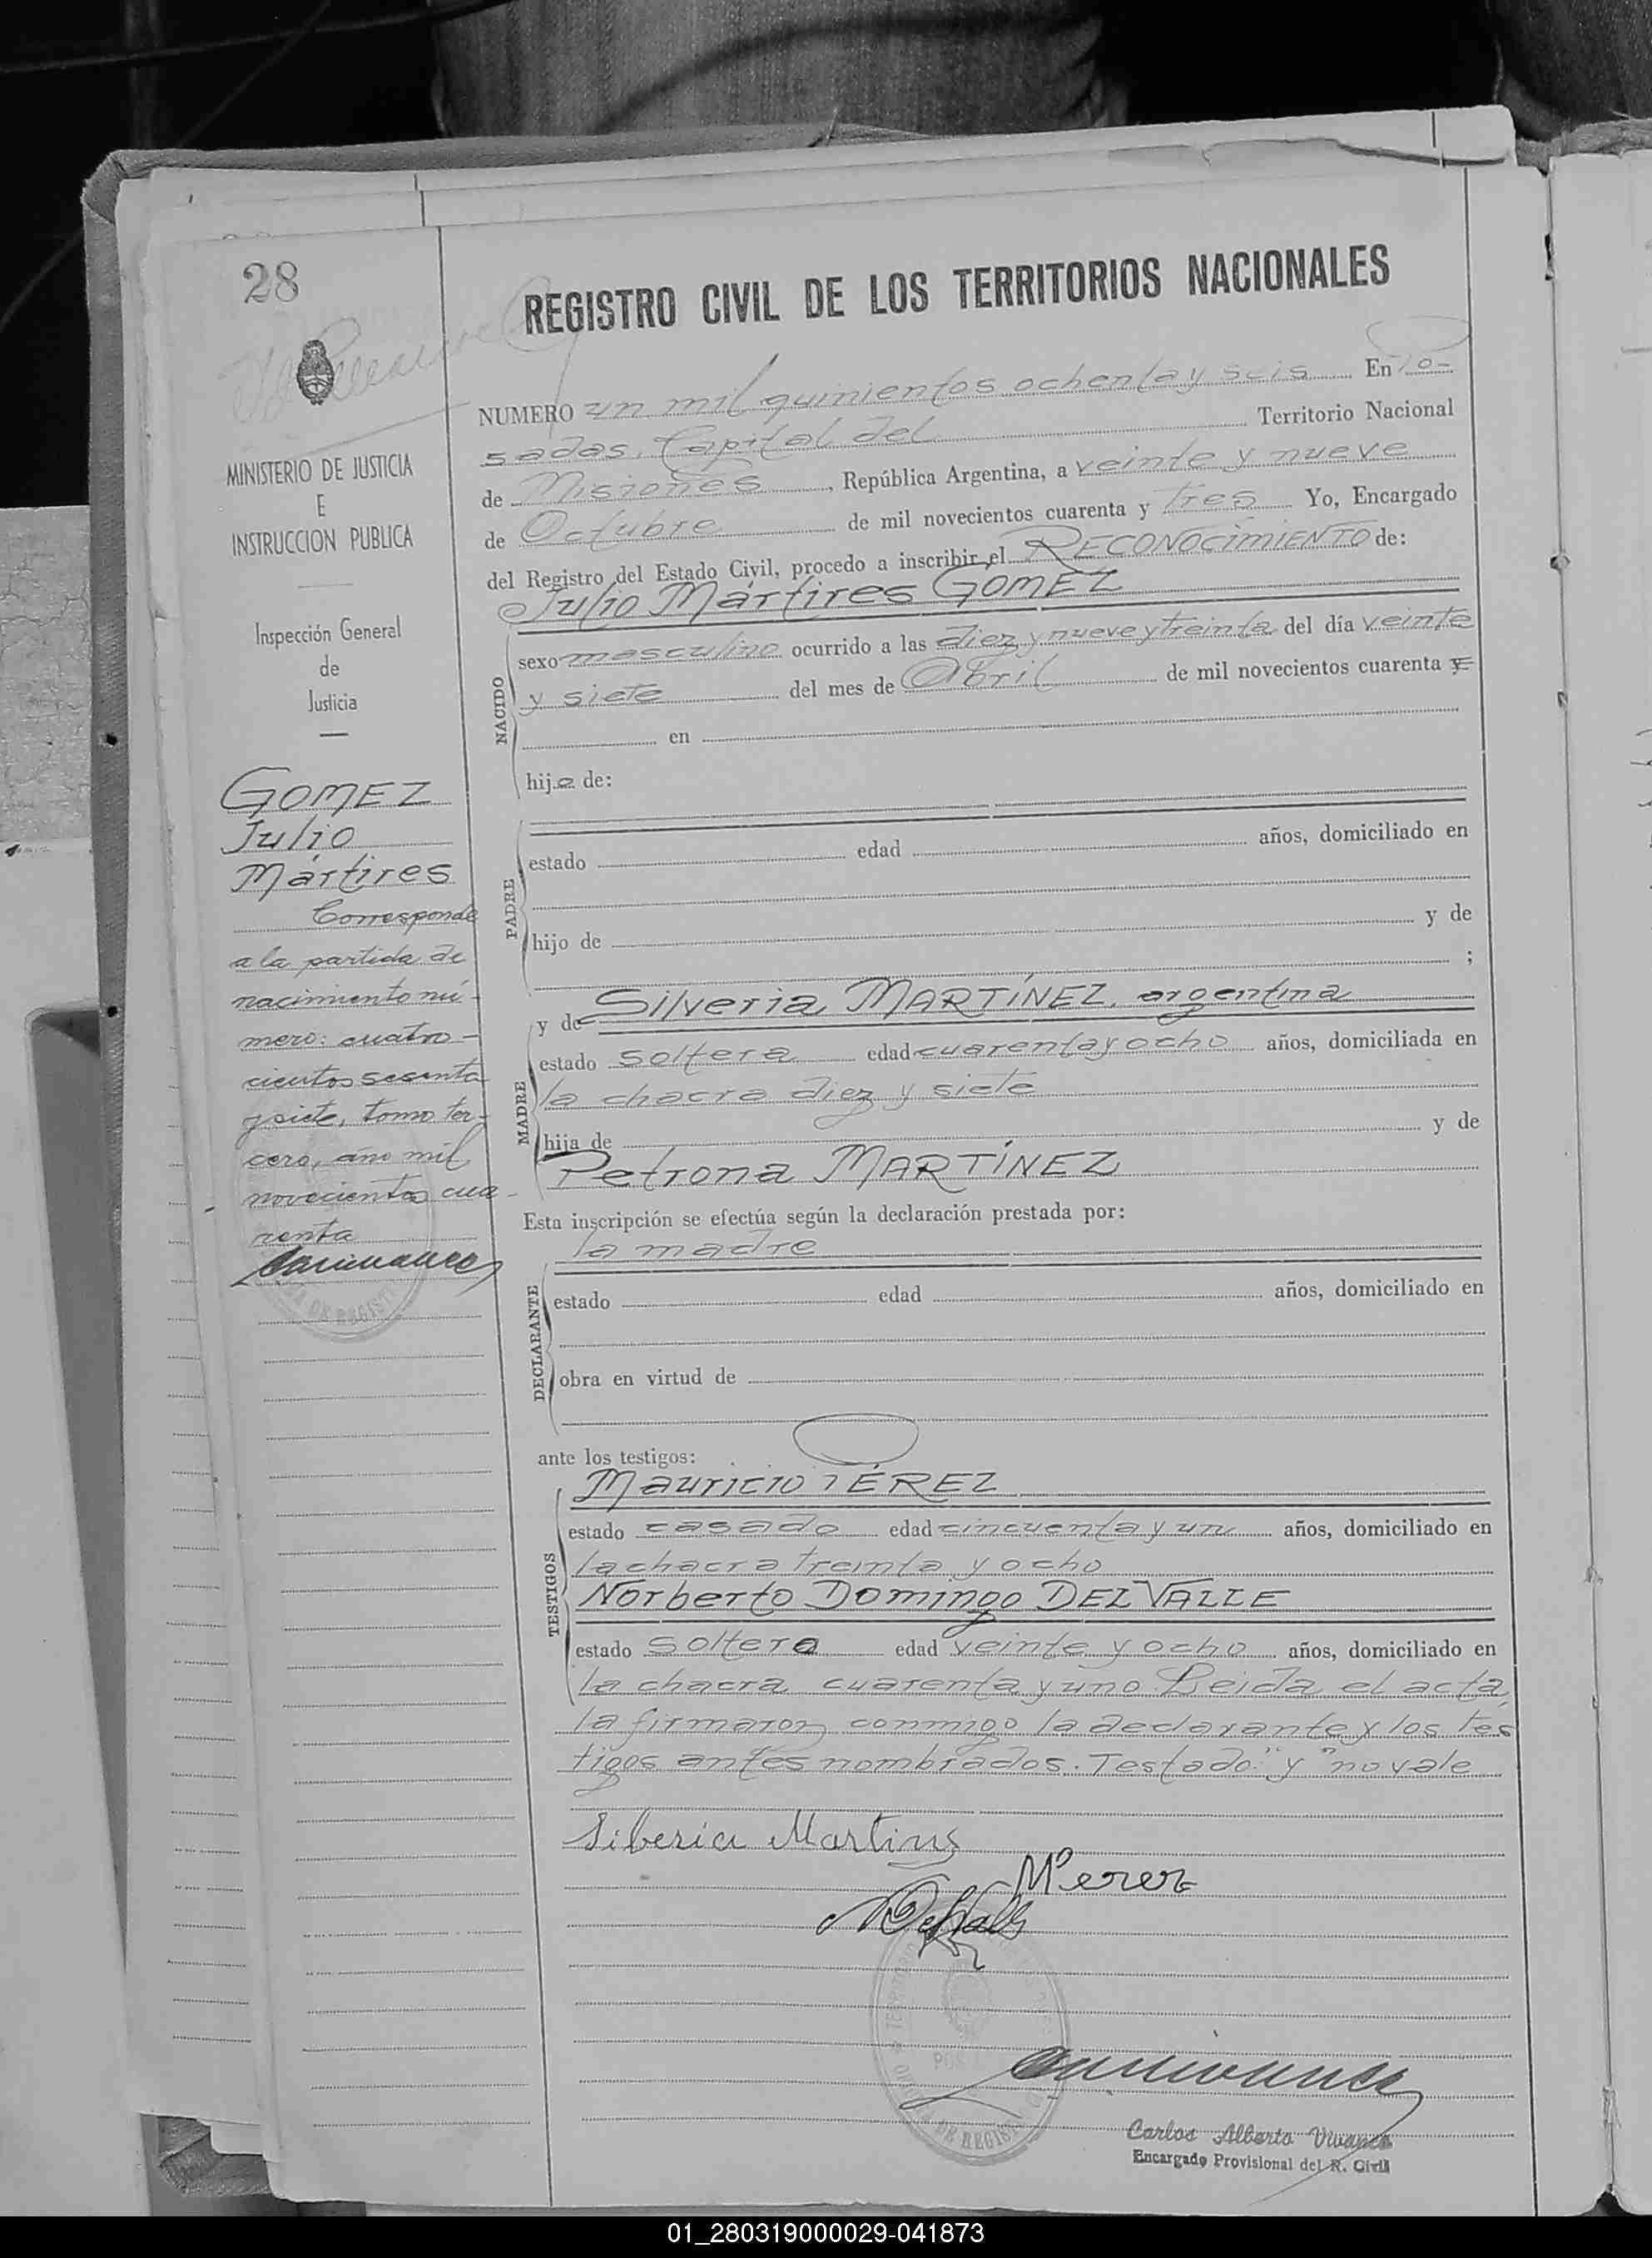 28
REGISTRO CIVIL DE LOS TERRITORIOS NACIONALES
MINISTERIO DE JUSTICIA
E
INSTRUCCION PUBLICA
Inspección General
de
Justicia
GOMEZ
Julio
Mártires
Corresponde
a la partida de
nacimiento nú-
mero: cuatro-
cientos sesenta
y siete, tomo ter-
cero, año mil
novecientos cua-
renta
NUMERO un mil quinientos ochenta y seis En Po-
sadas, Capital del Territorio Nacional
de Misiones, República Argentina, a veinte y nueve
de Octubre de mil novecientos cuarenta y tres Yo, Encargado
del Registro del Estado Civil, procedo a inscribir el RECONOCIMIENTO de:
Julio Mártires GOMEZ
NACIDO
sexo masculino ocurrido a las diez y nueve y treinta del día veinte
y siete del mes de Abril de mil novecientos cuarenta y
en
hijo de:
PADRE
estado edad años, domiciliado en
hijo de y de
;
y de Silveria MARTÍNEZ, argentina
MADRE
estado soltera edad cuarenta y ocho años, domiciliada en
la chacra diez y siete
hija de y de
Petrona MARTÍNEZ
Esta inscripción se efectúa según la declaración prestada por:
la madre
DECLARANTE
estado edad años, domiciliado en
obra en virtud de
ante los testigos:
Mauricio PÉREZ
TESTIGOS
estado casado edad cincuenta y un años, domiciliado en
la chacra treinta y ocho
Norberto Domingo DEL VALLE
estado soltero edad veinte y ocho años, domiciliado en
la chacra cuarenta y uno Leída el acta,
la firmaron conmigo la declarante y los tes
tigos antes nombrados. Testado: "y" no vale
Siberia Martines
M Perez
NDelValle
Carlos Alberto Vivanco
Encargado Provisional del R. Civil
01_280319000029-041873